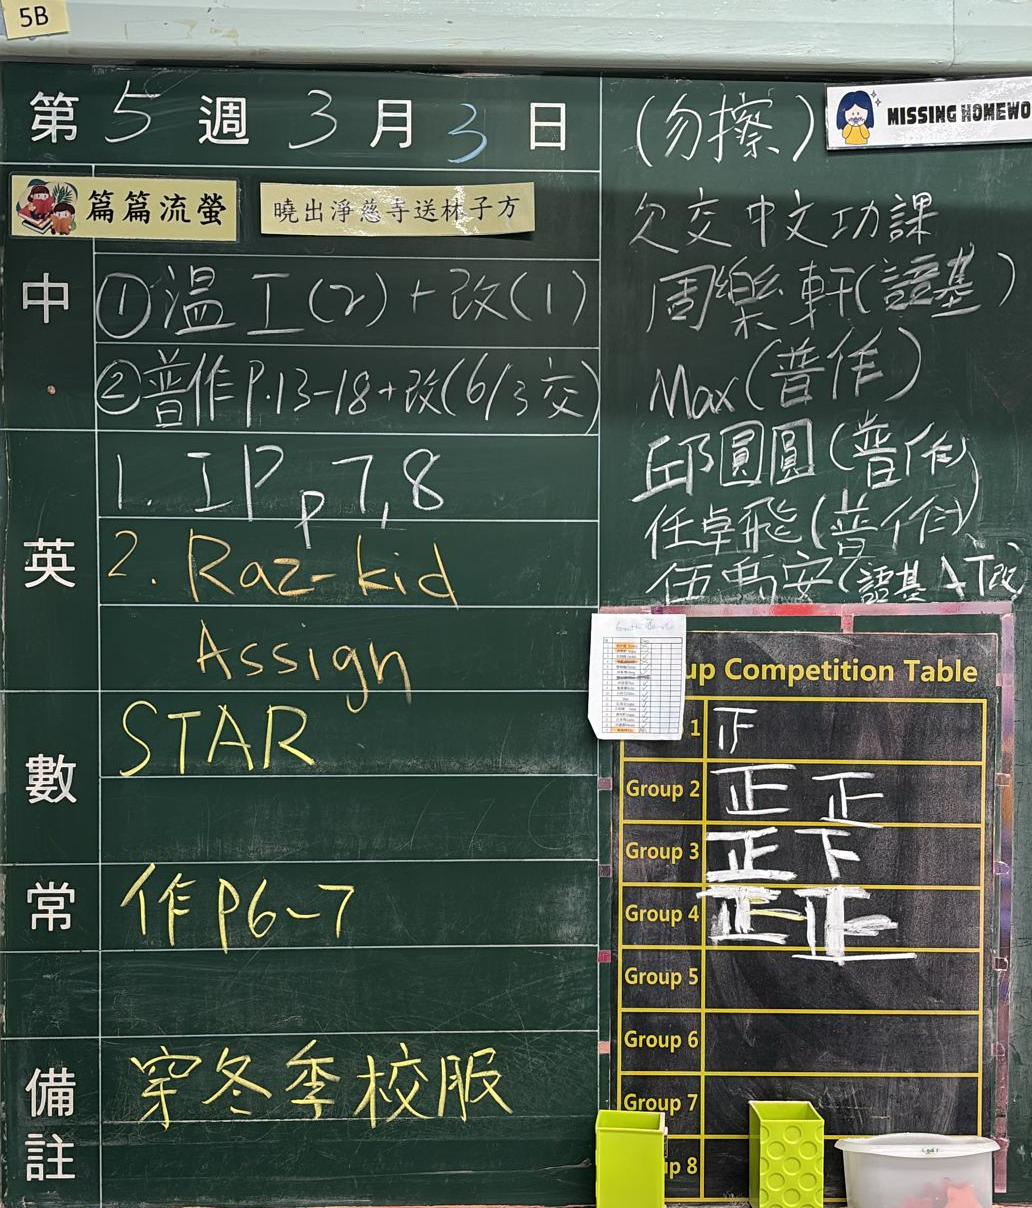 5B
第 5 週 3 月 3 日
篇篇流螢 曉出淨慈寺送林子方
中
①温工(2)+改(1)
②普作P.13-18+改(6/3交)
英
1. IP p7,8
2. Raz-kid
Assign
數
STAR
常
作P6-7
備註
穿冬季校服
(勿擦)
MISSING HOMEWO
欠交中文功課
周樂軒(語基)
Max(普作)
邱圓圓(普作)
任卓飛(普作)
伍禹安(語基 AT改)
up Competition Table
1 正
Group 2 正 正
Group 3 正 下
Group 4 正 正
Group 5
Group 6
Group 7
up 8